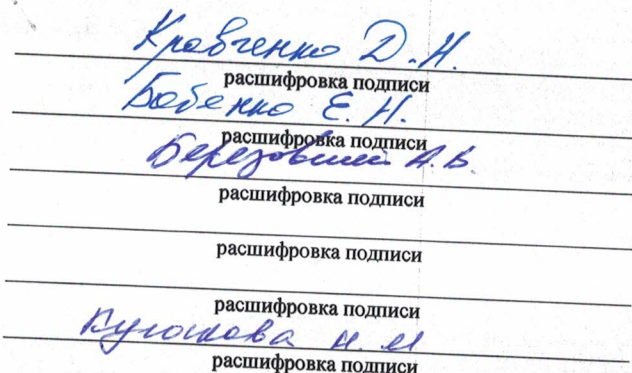 Кравченко Д.Н.
расшифровка подписи
Бабенко Е.Н.
расшифровка подписи
Березовский А.В.
расшифровка подписи
расшифровка подписи
расшифровка подписи
Н.М
расшифровка подписи